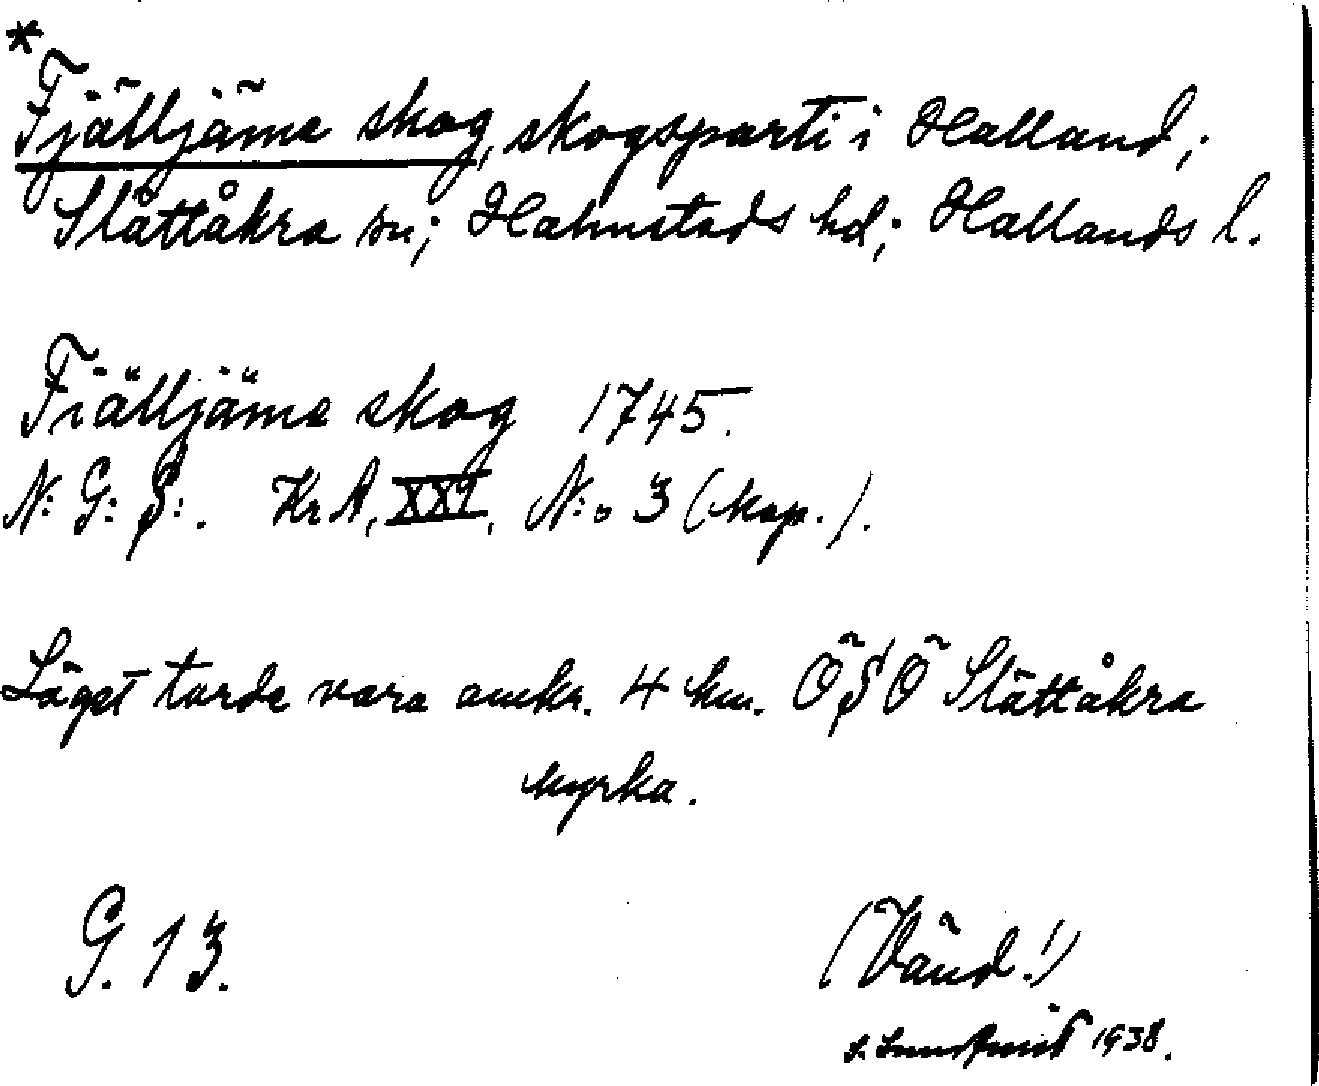 *
Fjälljäme skog, skogsparti i Halland;
Slättåkra sn; Halmstads hd; Hallands l.
Fiälljäme skog 1745.
N: G: S:. KrA, XXI, N:o 3 (kop.).
Läget torde vara omkr. 4 km. ÖSÖ Slättåkra
kyrka.
G. 13.
(Vänd!)
1938.